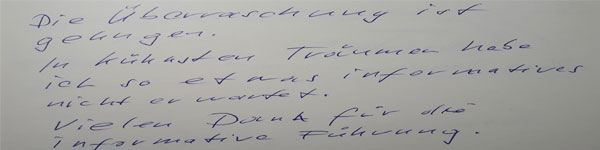 Die Überraschung ist
gelungen.
In kühnsten Träumen habe
ich so etwas informatives
nicht erwartet.
Vielen Dank für die
informative Führung.